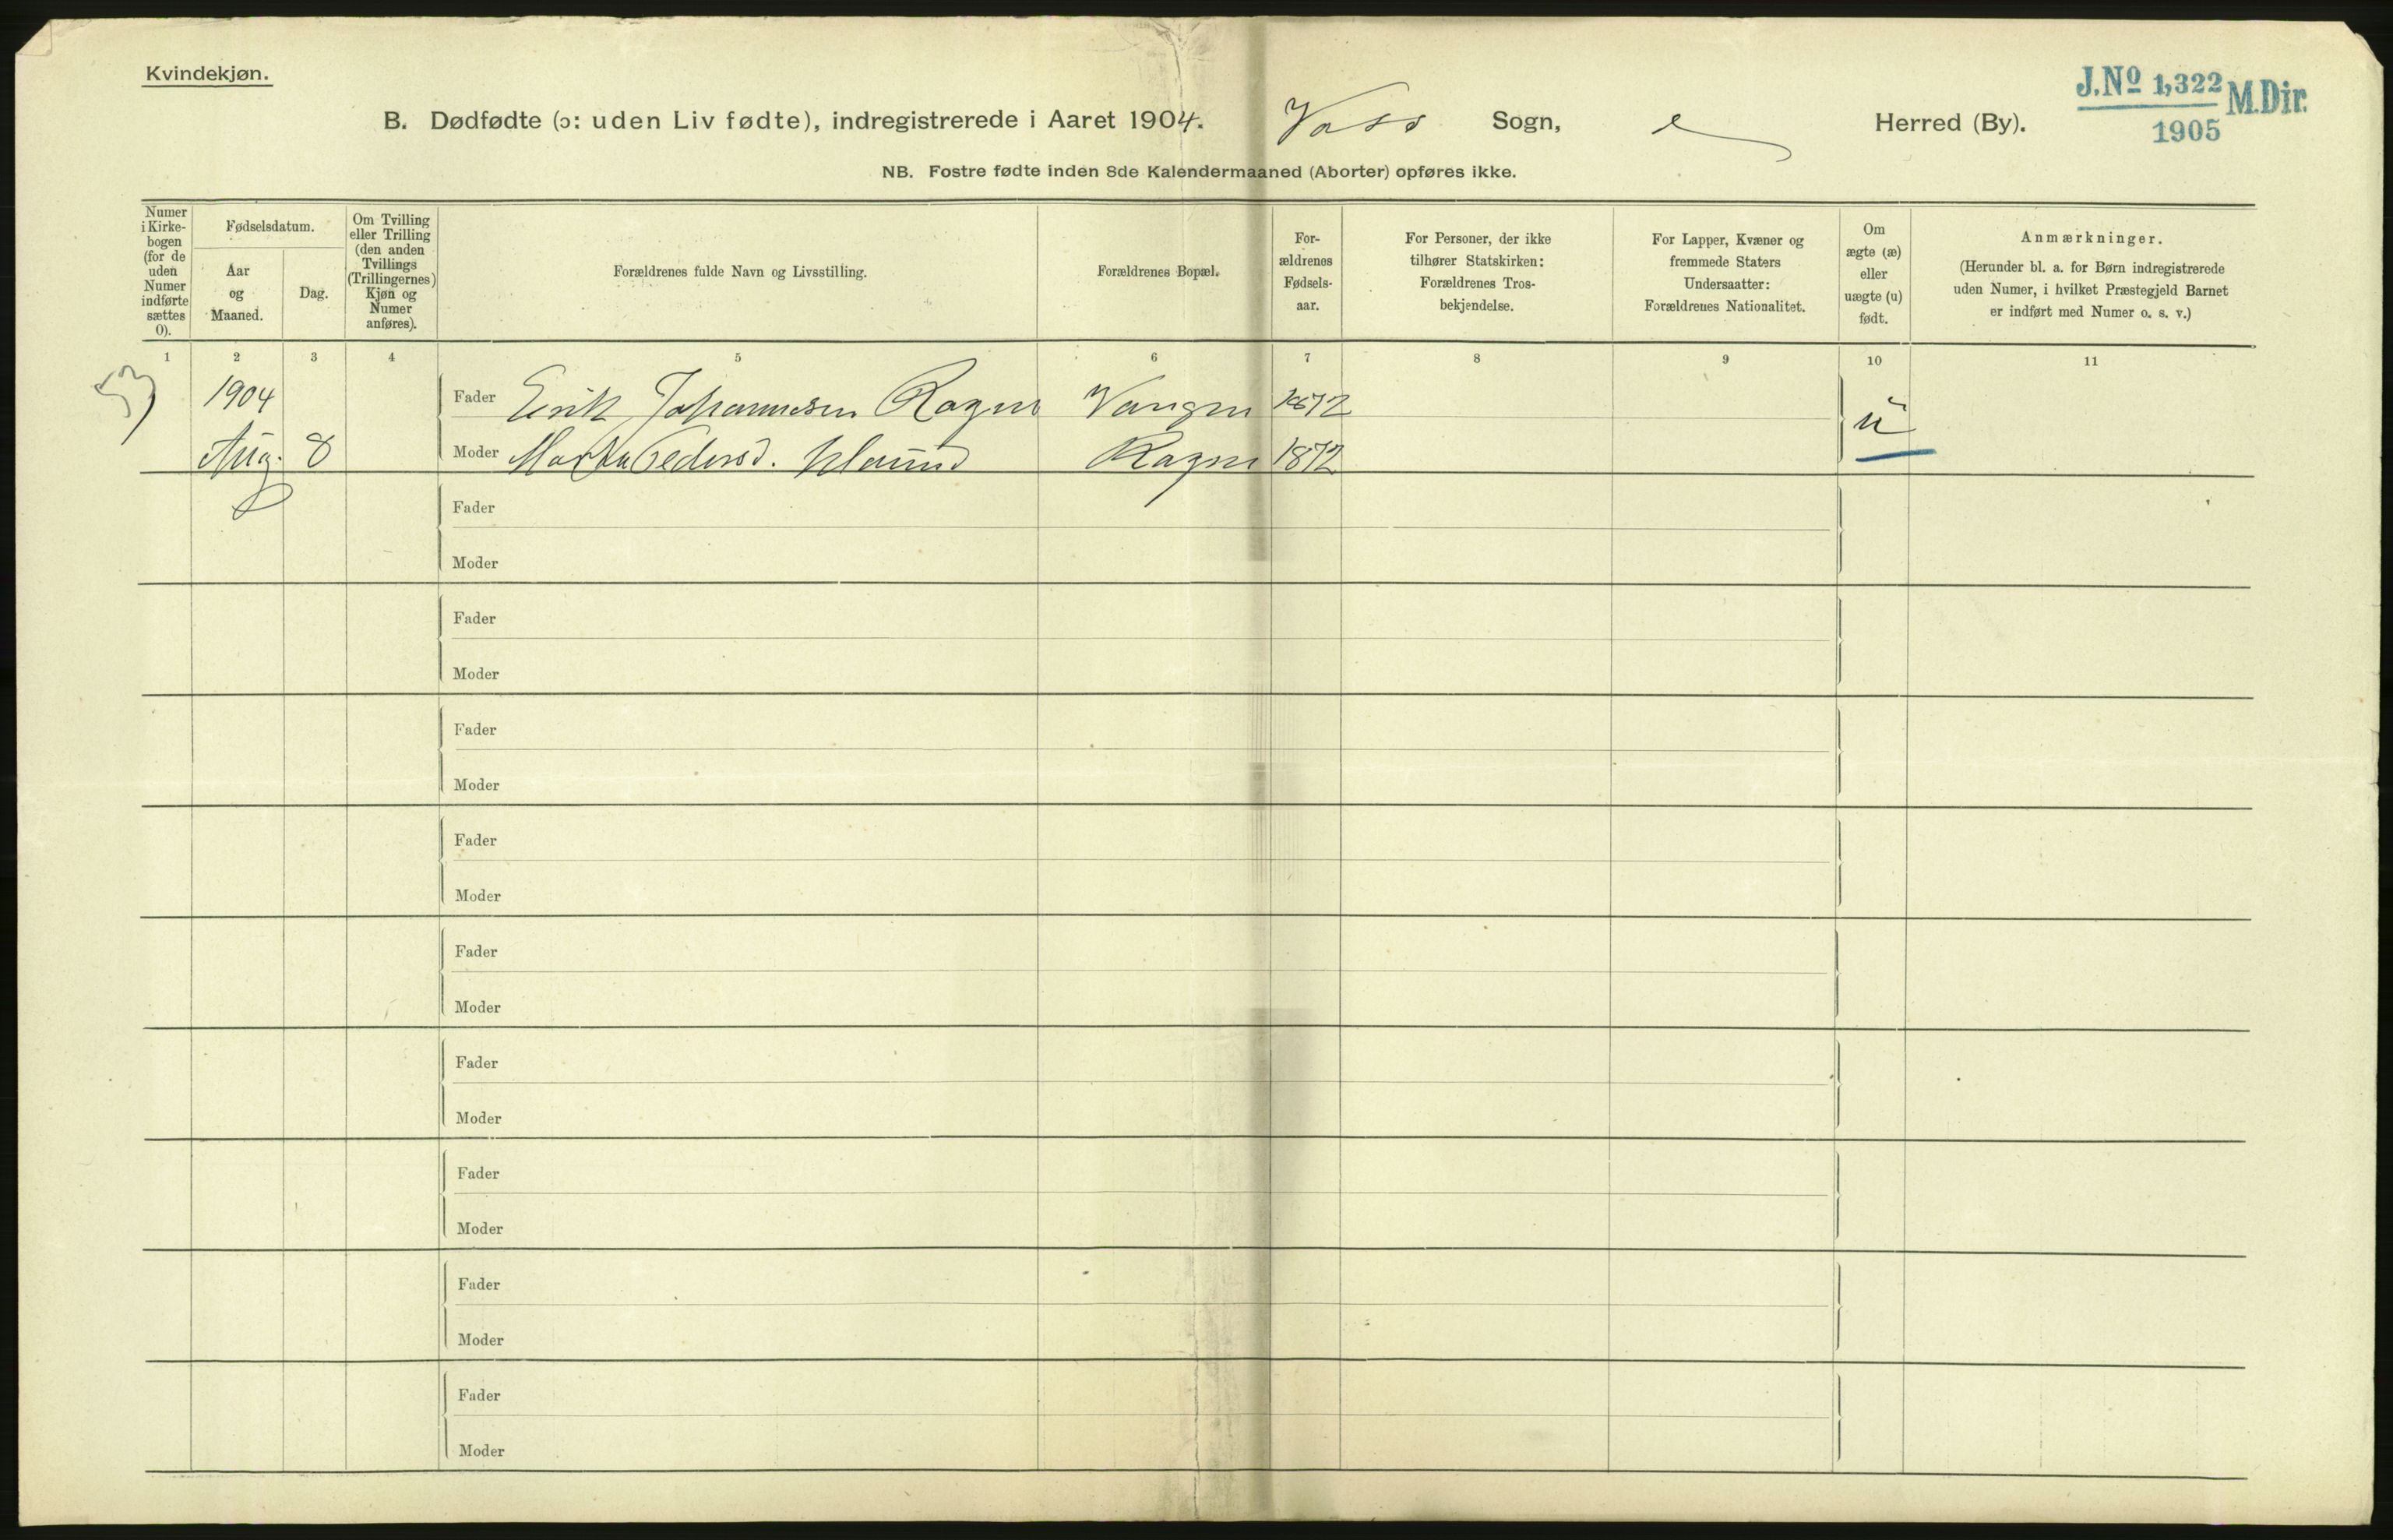 Kvindekjøn.
J.No 1,322 M.Dir.
1905
B. Dødfødte (ɔ: uden Liv fødte), indregistrerede i Aaret 1904. Voss Sogn, Herred (By).
NB. Fostre fødte inden 8de Kalendermaaned (Aborter) opføres ikke.
Numer
i Kirke-
bogen
(for de
uden
Numer
indførte
sættes
0).
Fødselsdatum.
Aar
og
Maaned.
Dag.
Om Tvilling
eller Trilling
(den anden
Tvillings
(Trillingernes)
Kjøn og
Numer
anføres).
Forældrenes fulde Navn og Livsstilling.
Forældrenes Bopæl.
For-
ældrenes
Fødsels-
aar.
For Personer, der ikke
tilhører Statskirken:
Forældrenes Tros-
bekjendelse.
For Lapper, Kvæner og
fremmede Staters
Undersaatter:
Forældrenes Nationalitet.
Om
ægte (æ)
eller
uægte (u)
født.
Anmærkninger.
(Herunder bl. a. for Børn indregistrerede
uden Numer, i hvilket Præstegjeld Barnet
er indført med Numer o. s. v.)
1 2 3 4 5 6 7 8 9 10 11
1904 Fader Erik Johannesen Rogne Vangen 1872
u
Aug. 8 Moder Martha Pedersd. Rogne 1872
Fader
Moder
Fader
Moder
Fader
Moder
Fader
Moder
Fader
Moder
Fader
Moder
Fader
Moder
Fader
Moder
Fader
Moder